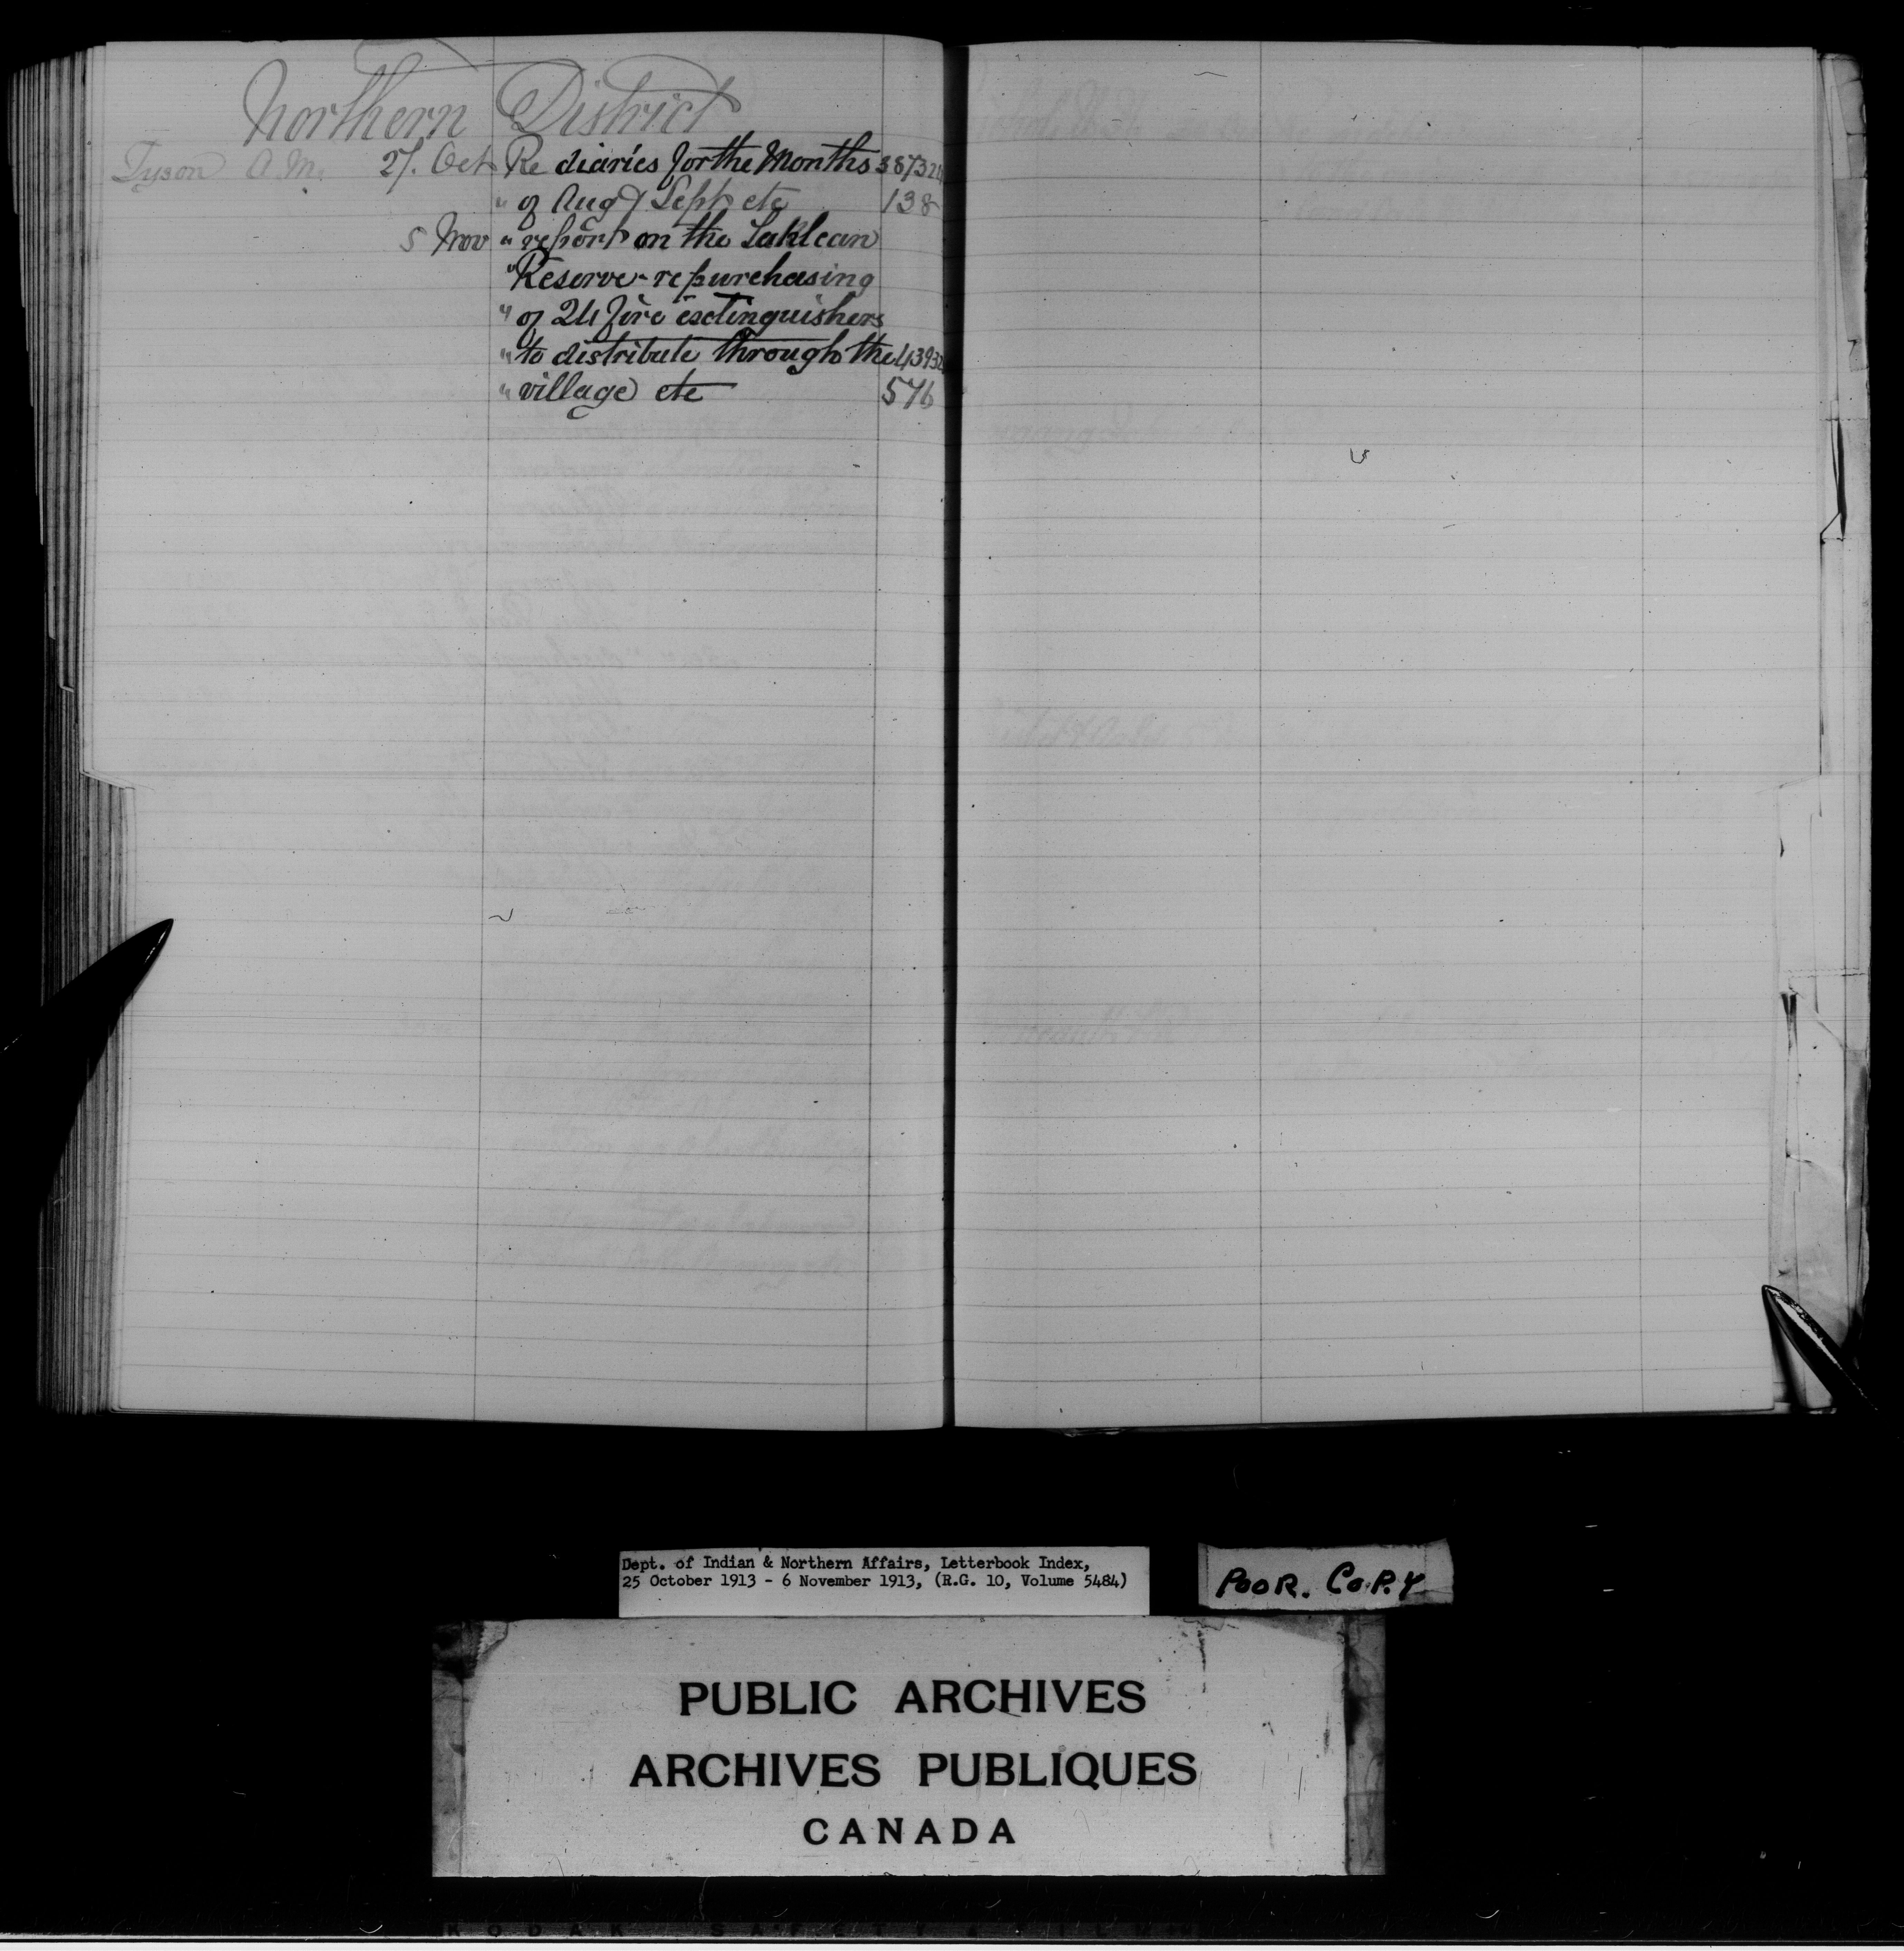 Northern District
Tyson A.M. 27. Oct Re diaries for the Months 387324
" of Aug & Sept etc 138
5 Nov " report on the Laklean
" Reserve - re purchasing
" of 24 fire extinguishers
" to distribute through the 43932
" village etc 576
Dept. of Indian & Northern Affairs, Letterbook Index,
25 October 1913 - 6 November 1913, (R.G. 10, Volume 5484)
POOR. COPY
PUBLIC ARCHIVES
ARCHIVES PUBLIQUES
CANADA
KODAK SAFETY FILM